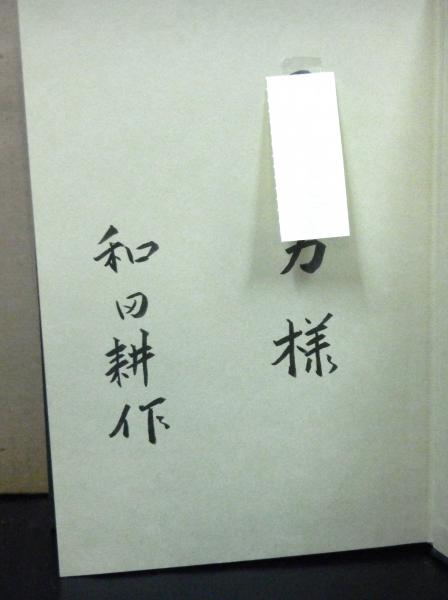 様
和田耕作